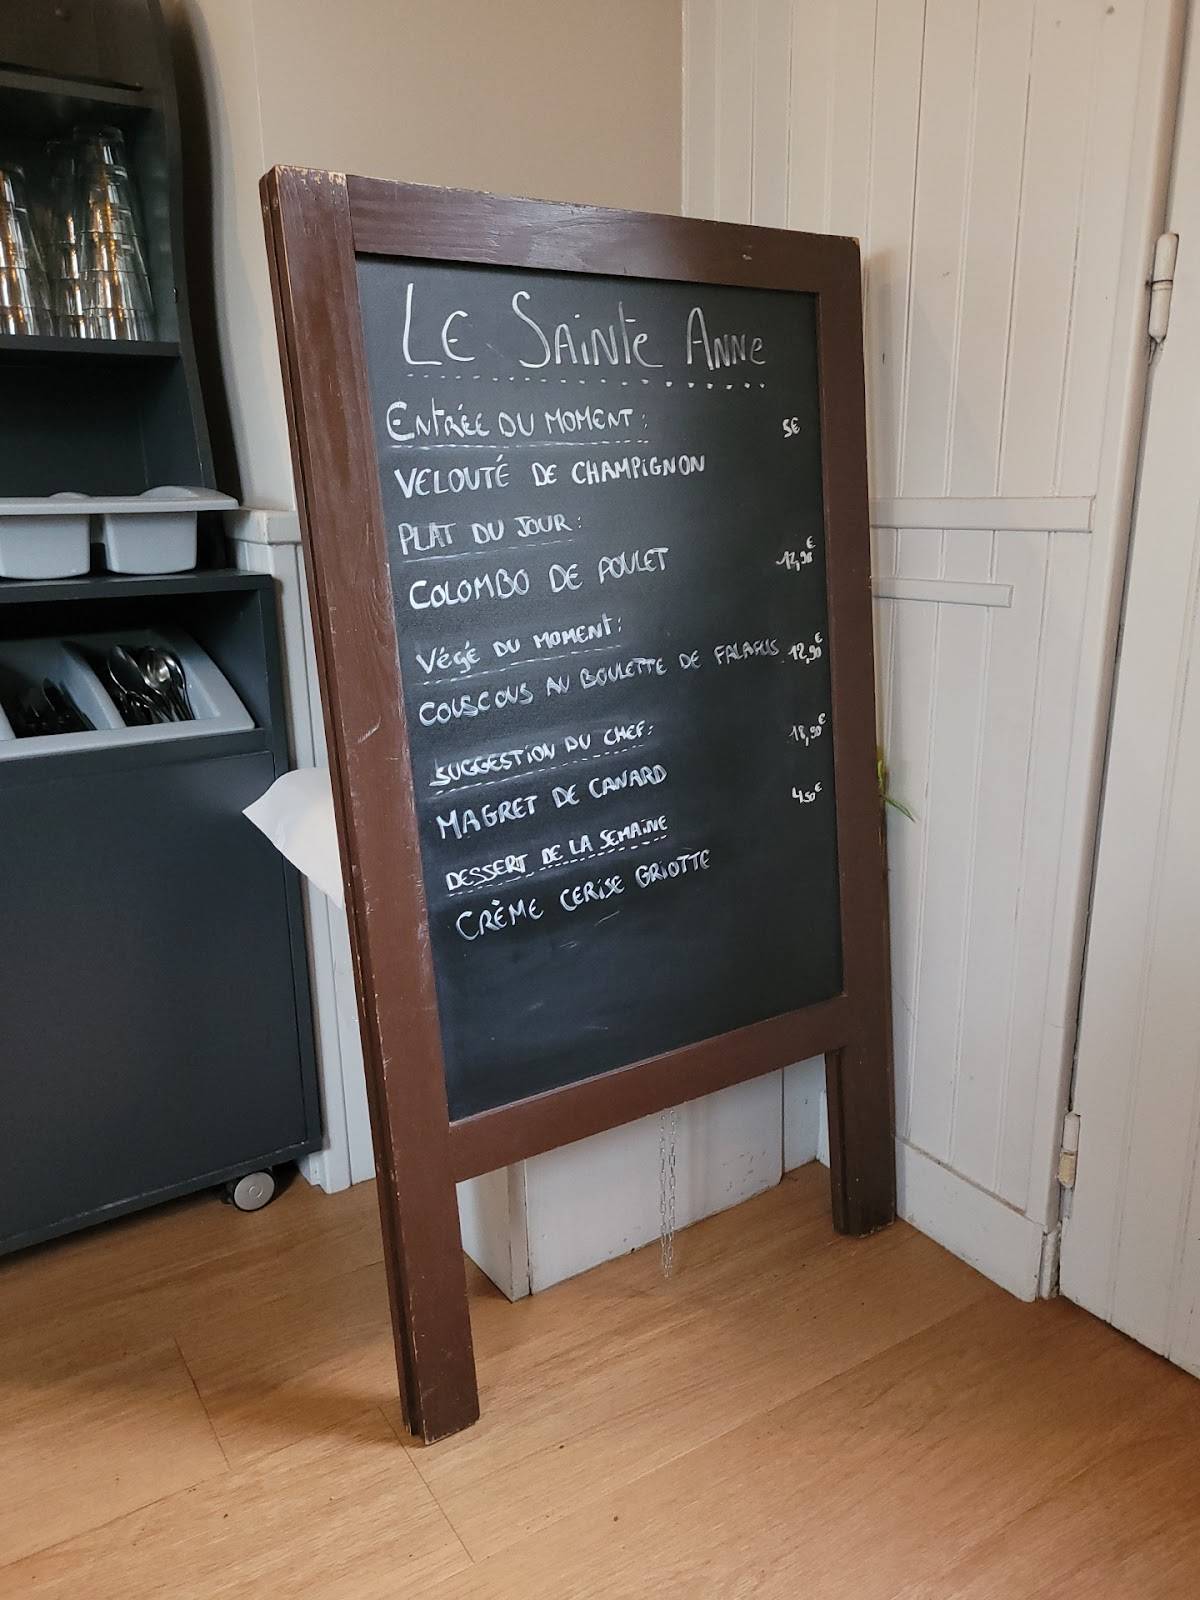 Le Sainte Anne
Entrée du moment : 5€
Velouté de champignon
Plat du jour :
Colombo de poulet 12,90€
Végé du moment :
Couscous au boulette de falafels 12,90€
Suggestion du chef : 18,90€
Magret de canard
Dessert de la semaine 4,50€
Crème cerise griotte